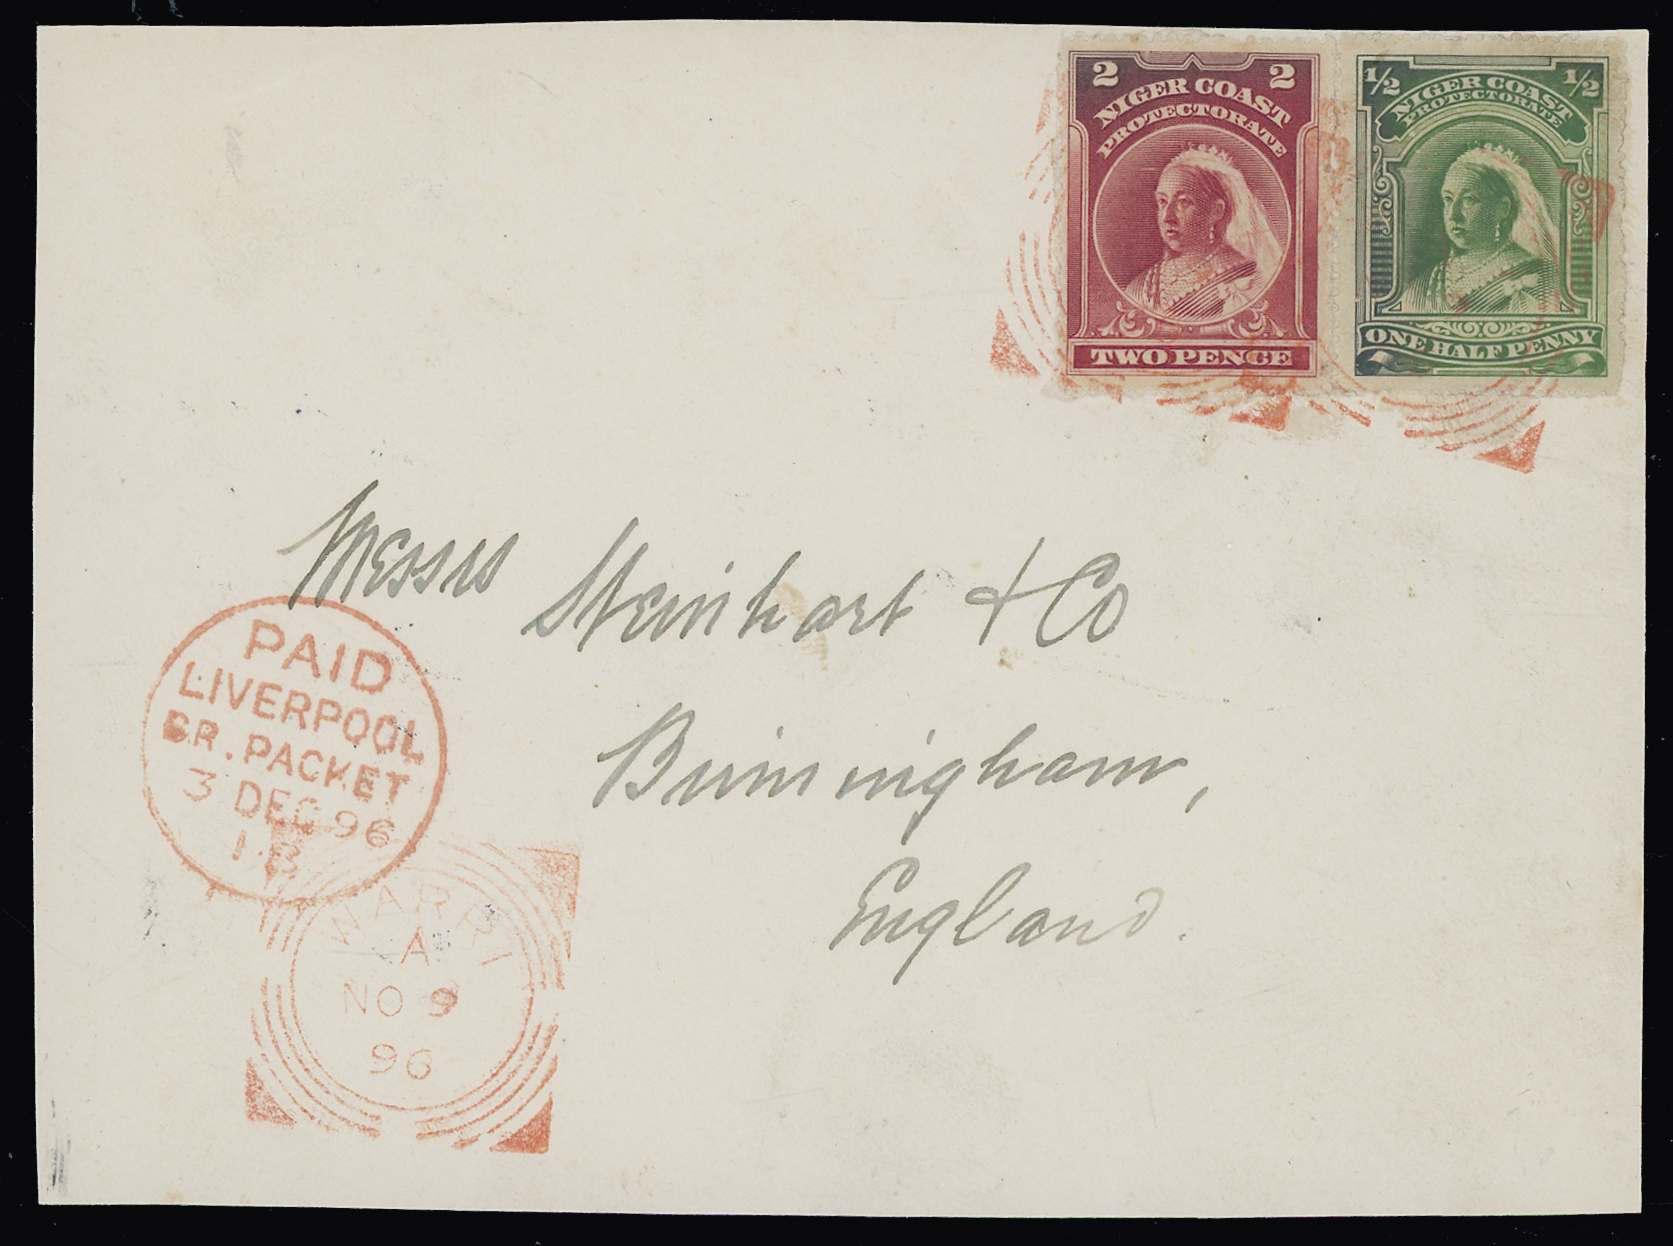 2 2
NIGER COAST
PROTECTORATE
TWO PENCE
1/2 1/2
NIGER COAST
PROTECTORATE
ONE HALF PENNY
Messrs Steinhart & Co
Birmingham,
England.
PAID
LIVERPOOL
BR. PACKET
3 DEC 96
1·B
WARRI
A
NO 9
96